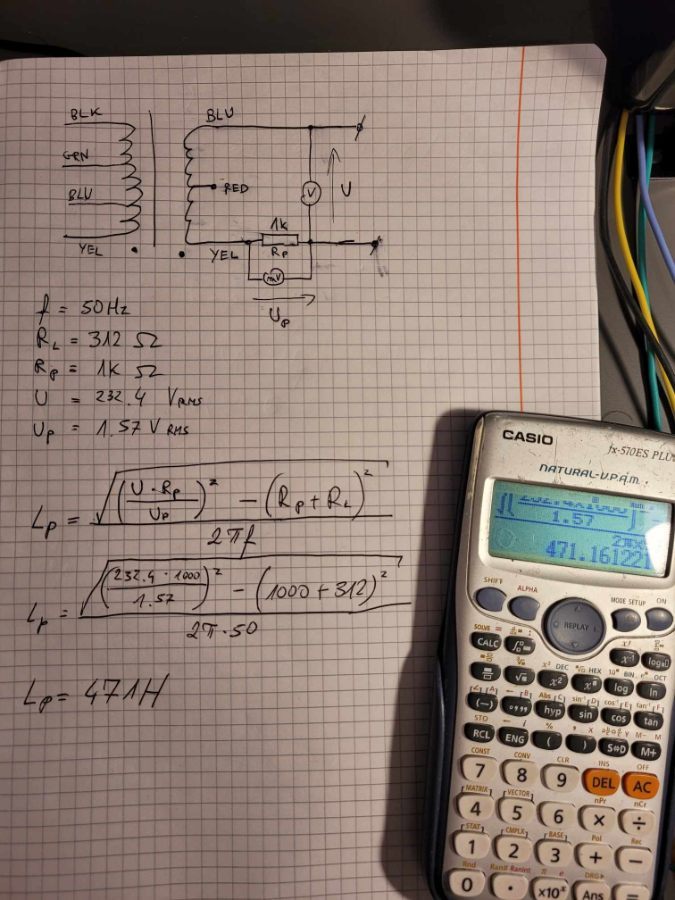 BLK
BLU
GRN
RED
V
U
BLU
1k
YEL
YEL
Rp
mV
Up
f = 50Hz
RL = 312 Ω
Rp = 1k Ω
U = 232.4 VRMS
Up = 1.57 V RMS
Lp = √((U · Rp / Up)² - (Rp + RL)²) / 2πf
Lp = √((232.4 · 1000 / 1.57)² - (1000 + 312)²) / 2π·50
Lp = 471H
CASIO
fx-570ES PLUS
NATURAL-V.P.A.M.
1.57
471.161221
SHIFT ALPHA MODE SETUP ON
REPLAY
SOLVE =
CALC
log ln
(−) hyp sin cos tan
STO
RCL ENG ( ) S⇔D M+
CONST CONV CLR INS OFF
7 8 9 DEL AC
MATRIX VECTOR nPr nCr
4 5 6 × ÷
STAT CMPLX BASE Pol Rec
1 2 3 + −
Rnd Ran# RanInt π e DRG▸
0 . ×10ˣ Ans =